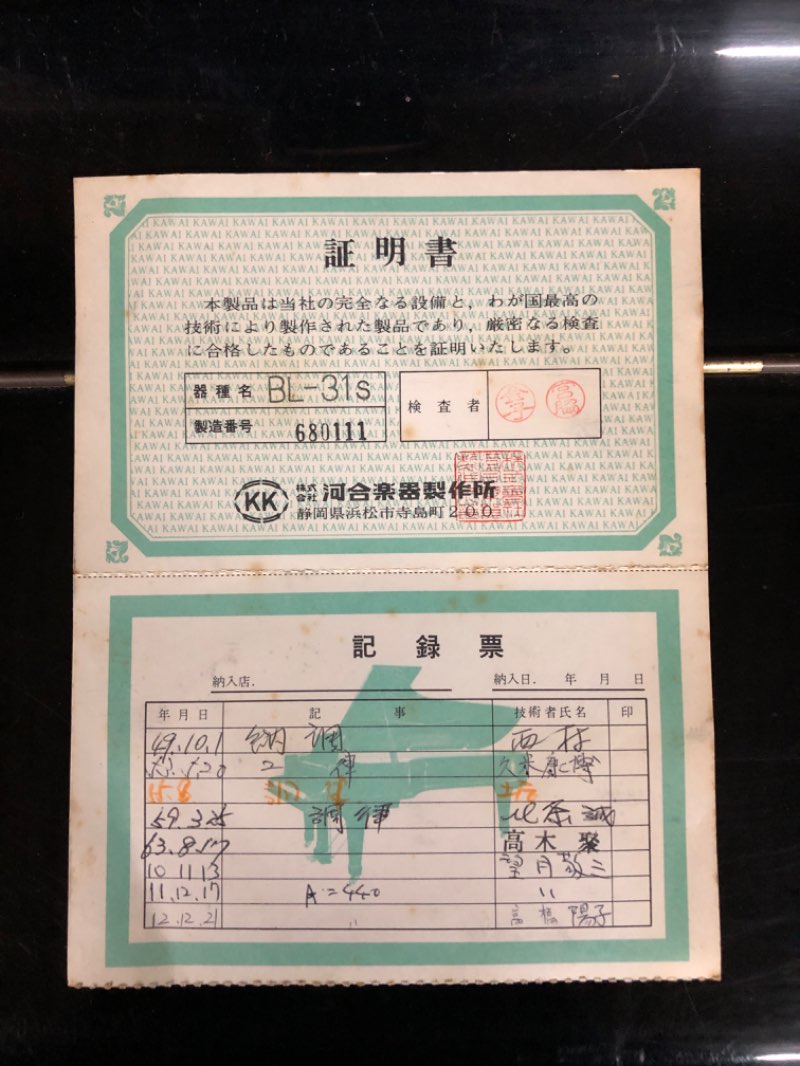 証明書
本製品は当社の完全なる設備と,わが国最高の
技術により製作された製品であり,厳密なる検査
に合格したものであることを証明いたします。
器種名 BL-31s
製造番号 680111
検査者
KK 株式会社 河合楽器製作所
静岡県浜松市寺島町200
記録票
納入店. 納入日. 年 月 日
年月日 記事 技術者氏名 印
49.10.1 納調 西村
律 久米康博
59.3.25 調律 誠
63.8.17 高木聚
10.11.13 望月敬三
11.12.17 A=440 〃
12.12.21 〃 高橋陽子